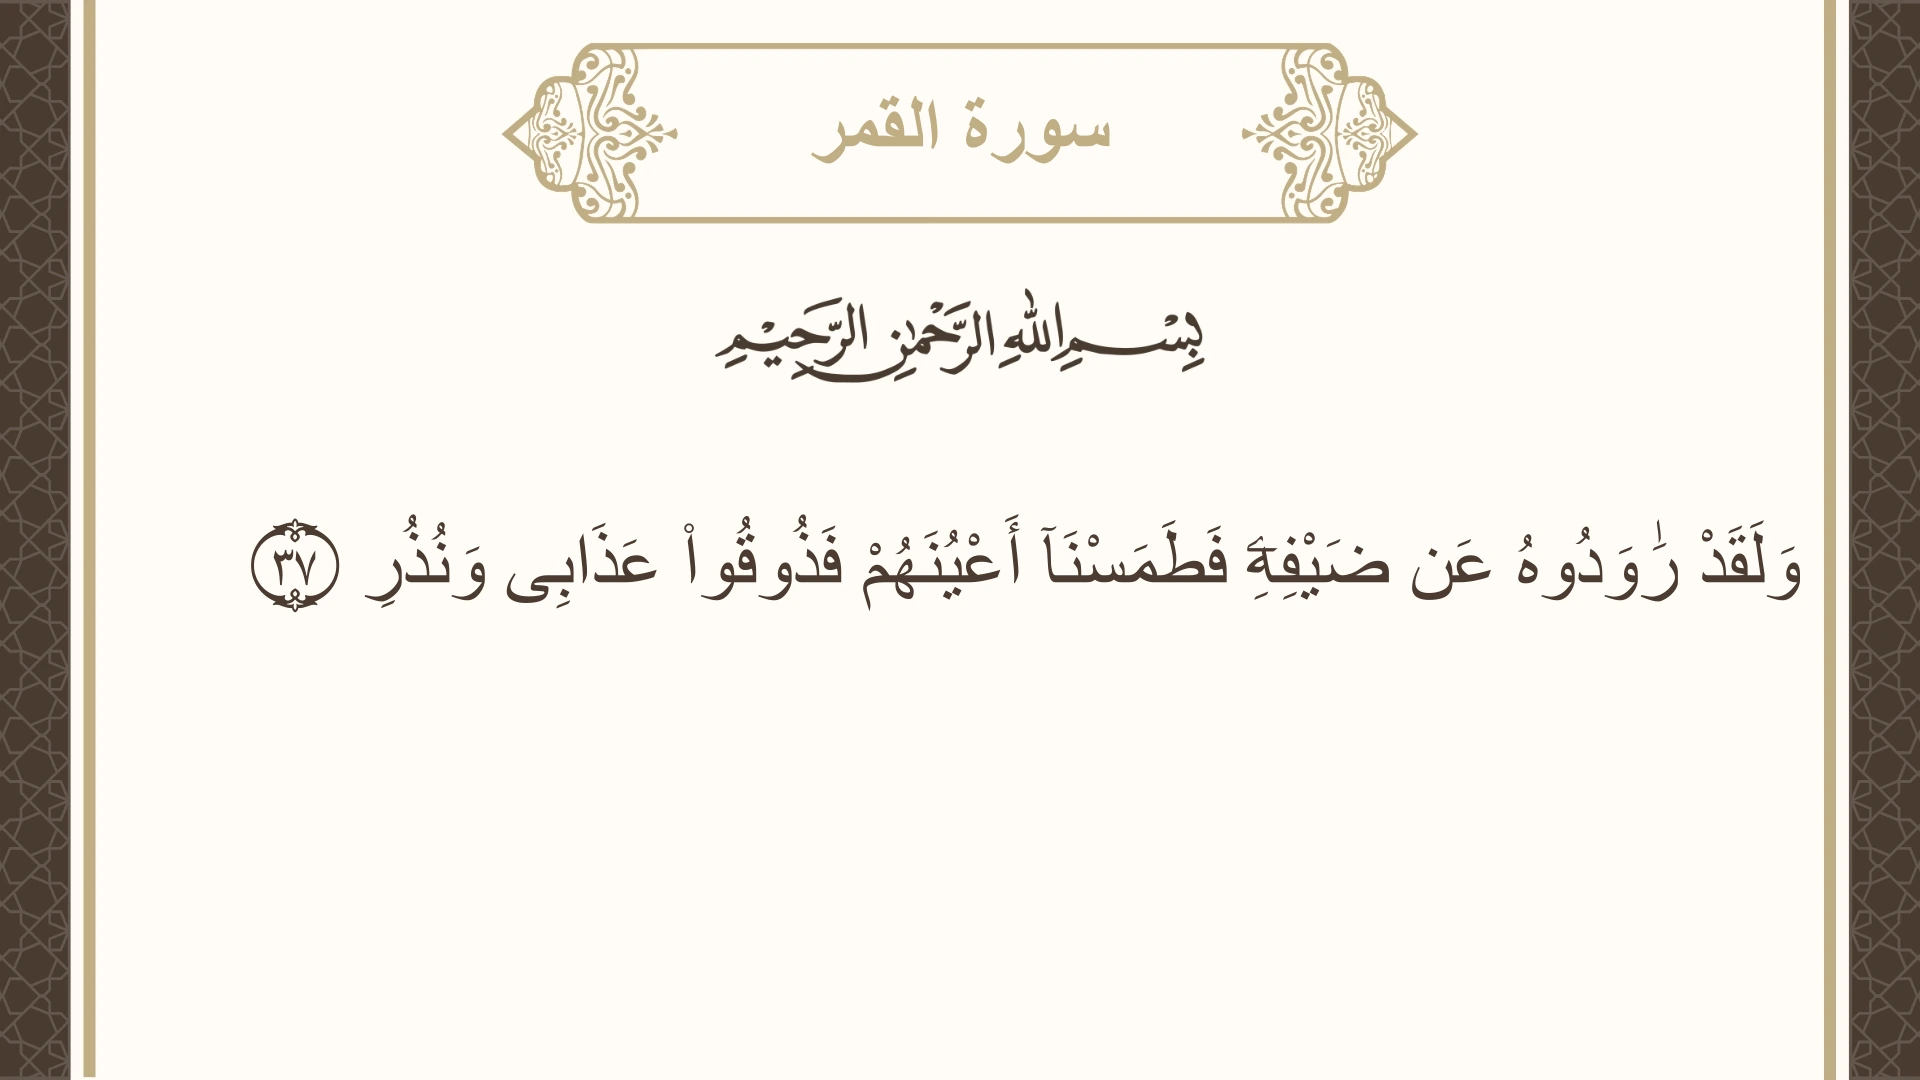 سورة القمر
بِسْمِ اللهِ الرَّحْمٰنِ الرَّحِيْمِ
وَلَقَدْ رَٰوَدُوهُ عَن ضَيْفِهِۦ فَطَمَسْنَآ أَعْيُنَهُمْ فَذُوقُوا۟ عَذَابِى وَنُذُرِ ٣٧